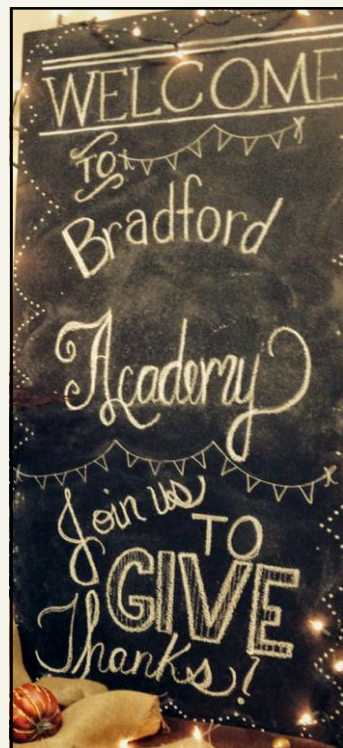 WELCOME
TO
Bradford
Academy
Join us
TO
GIVE
Thanks!